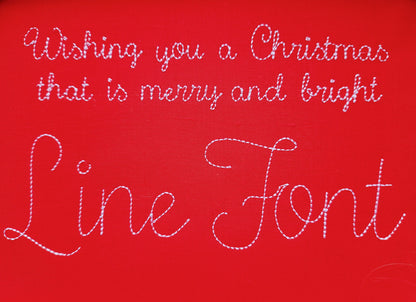 Wishing you a Christmas
that is merry and bright
Line Font